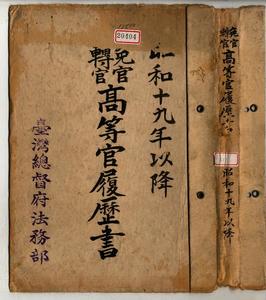 20404
昭和十九年以降
免官
轉官
高等官履歷書
臺灣總督府法務部
免官
轉官
高等官履歷書
昭和十九年以降